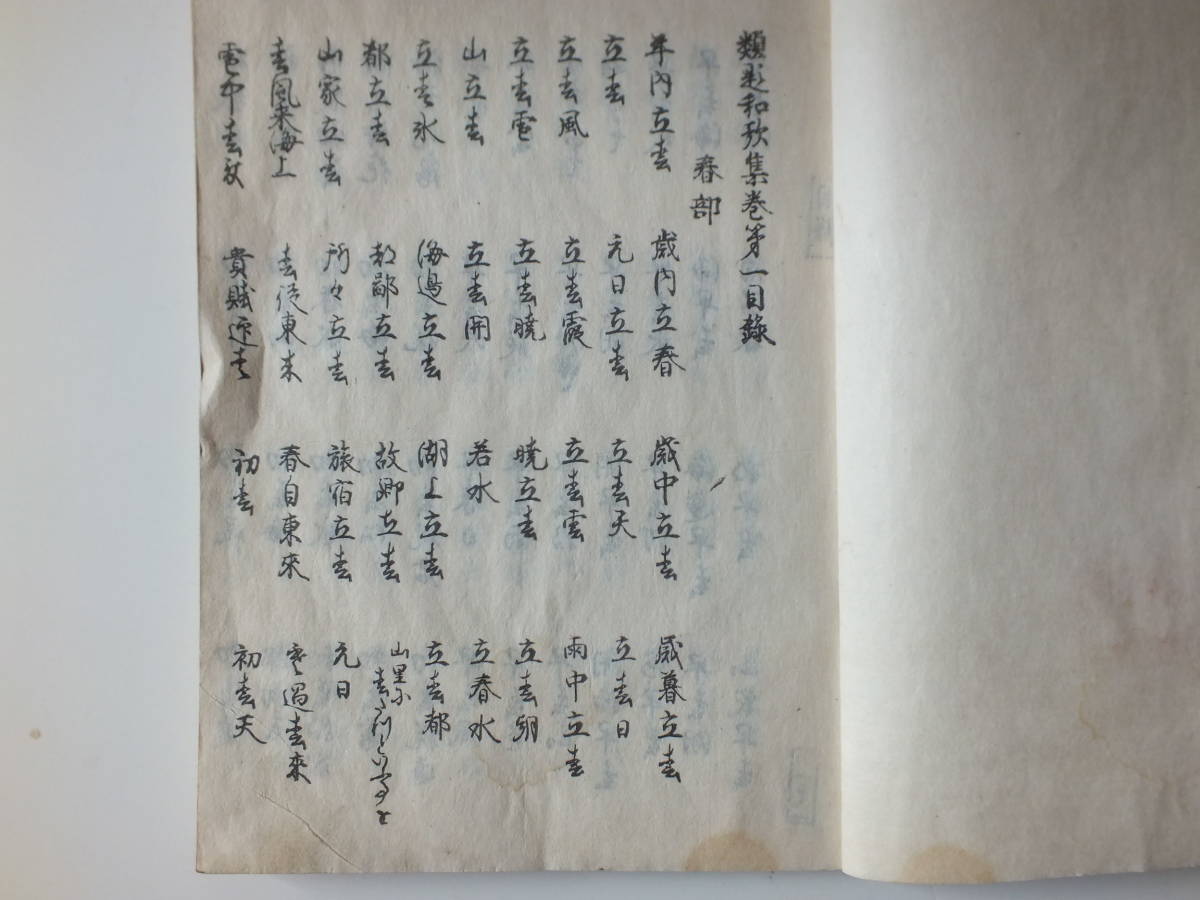 類題和歌集巻第一目録
春部
年内立春 歳内立春 歳中立春 歳暮立春
立春 元日立春 立春天 立春日
立春風 立春霞 立春雲 雨中立春
立春雪 立春暁 暁立春 立春朝
山立春 立春關 若水 立春水
立春氷 海邊立春 湖上立春 立春都
都立春 都鄙立春 故郷立春 山里に春たつといふ事を
山家立春 所々立春 旅宿立春 元日
春風来海上 春従東来 春自東來 寒過春來
雪中春 貴賤迎春 初春 初春天